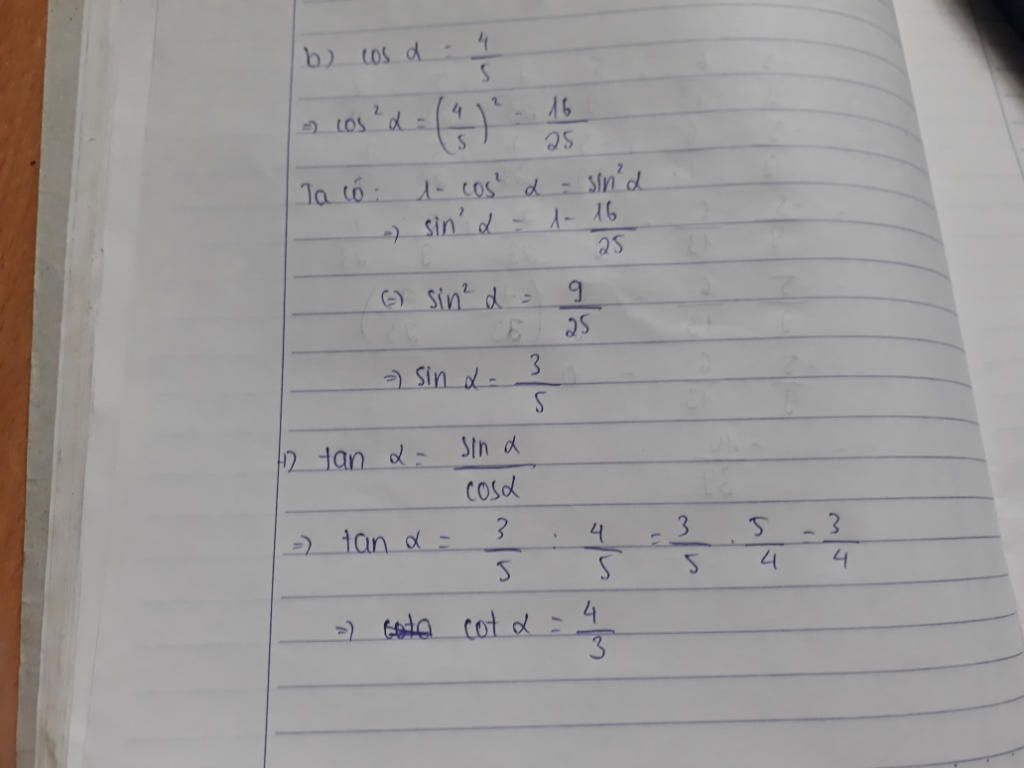 b) cos α = 4/5
=> cos² α = (4/5)² = 16/25
Ta có: 1 - cos² α = sin² α
=> sin² α = 1 - 16/25
(=) sin² α = 9/25
=> sin α = 3/5
+) tan α = sin α/cos α
=> tan α = 3/5 : 4/5 = 3/5 . 5/4 = 3/4
=> cot α = 4/3